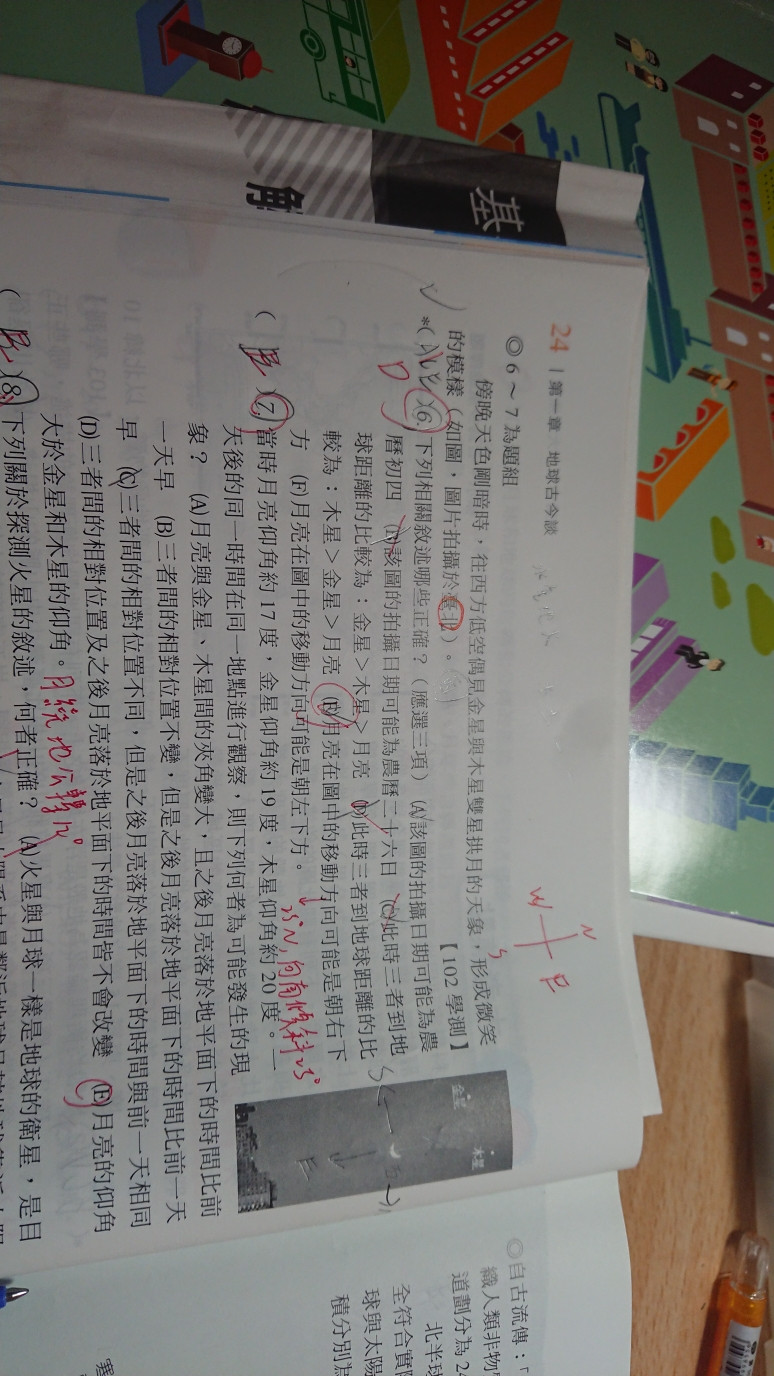 基
解
24 | 第一章 地球古今談
◎6～7為題組
傍晚天色剛暗時，往西方低空偶見金星與木星雙星拱月的天象，形成微笑
的模樣（如圖，圖片拍攝於臺北）。
【102 學測】
*( )6. 下列相關敘述哪些正確？（應選三項）(A)該圖的拍攝日期可能為農
D
曆初四 (B)該圖的拍攝日期可能為農曆二十六日 (C)此時三者到地
球距離的比較為：金星＞木星＞月亮 (D)此時三者到地球距離的比
較為：木星＞金星＞月亮 (E)月亮在圖中的移動方向可能是朝右下
方 (F)月亮在圖中的移動方向可能是朝左下方。
25°N，向南傾斜25°
( E )7. 當時月亮仰角約 17 度，金星仰角約 19 度，木星仰角約 20 度。一
天後的同一時間在同一地點進行觀察，則下列何者為可能發生的現
象？ (A)月亮與金星、木星間的夾角變大，且之後月亮落於地平面下的時間比前
一天早 (B)三者間的相對位置不變，但是之後月亮落於地平面下的時間比前一天
早 (C)三者間的相對位置不同，但是之後月亮落於地平面下的時間與前一天相同
(D)三者間的相對位置及之後月亮落於地平面下的時間皆不會改變 (E)月亮的仰角
大於金星和木星的仰角。
月繞地公轉12°
8. 下列關於探測火星的敘述，何者正確？ (A)火星與月球一樣是地球的衛星，是目
N
W
E
S
金星
木星
S
◎自古流傳：「
織人類非物
道劃分為 24
北半球
全符合實際
球與太陽
積分別為